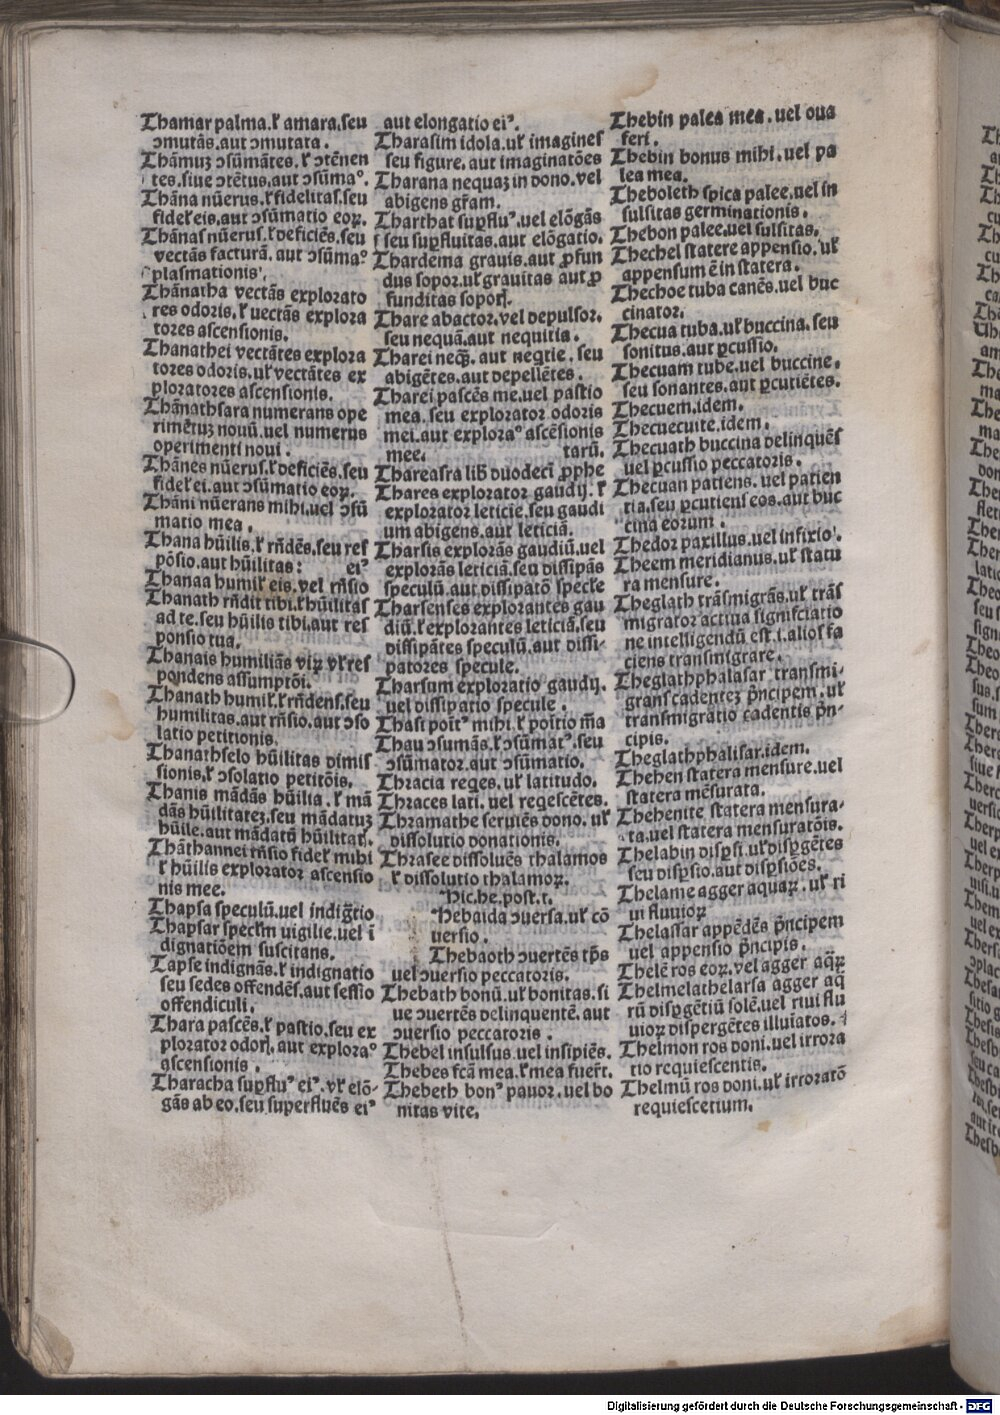 Thamar palma.ł amara.seu
ɔmutãs.aut ɔmutata.
Thãmuz ɔsũmãtes.ł ɔtẽnen
tes.siue ɔtẽtus.aut ɔsũmaᵒ.
Thãna nũerus.ł fidelitas.seu
fideł eis.aut ɔsũmatio eoꝝ.
Thãnas nũerus.ł deficiẽs.seu
vectãs facturã.aut ɔsũmaᵒ
plasmationis.
Thãnatha vectãs explorato
res odoris.ł uectãs explora
tores ascensionis.
Thanathei vectãtes explora
tores odoris.uł vectãtes ex
ploratores ascensionis.
Thãnathsara numerans ope
rimẽtuz nouũ.uel numerus
operimenti noui.
Thãnes nũerus.ł deficiẽs.seu
fideł ei.aut ɔsũmatio eoꝝ.
Thãni nũerans mihi.uel ɔsũ
matio mea.
Thana hũilis.ł rñdẽs.seu res
põsio.aut hũilitas: eiꝰ
Thanaa humił eis.vel rñsio
Thanath rñdit tibi.ł hũilitas
ad te.seu hũilis tibi.aut res
ponsio tua.
Thanais humiliãs viꝝ vł res
pondens assumptõi.
Thanath humił.ł rñdens.seu
humilitas.aut rñsio.aut ɔso
latio petitionis.
Thanathselo hũilitas dimis
sionis.ł ɔsolatio petitõis.
Thanis mãdãs hũilia.ł mã
dãs hũilitatez.seu mãdatuz
hũile.aut mãdatũ hũilitatꝭ.
Thãthannei rñsio fideł mihi
ł hũilis explorator ascensio
nis mee.
Thapsa speculũ.uel indig̃tio
Thapsar specłm uigilie.uel ĩ
dignatiõem suscitans.
Tapse indignãs.ł indignatio
seu sedes offendẽs.aut sessio
offendiculi.
Thara pascẽs.ł pastio.seu ex
plorator odorꝭ.aut exploraᵒ
ascensionis.
Tharacha suꝑfluꝰ eiꝰ.vł elõ-
gãs ab eo.seu superfluẽs eiꝰ
aut elongatio eiꝰ.
Tharasim idola.uł imagines
seu figure.aut imaginatões
Tharana nequaz in dono.vel
abigens gr̃am.
Tharthat suꝑfluꝰ.uel elõgãs
seu suꝑfluitas.aut elõgatio.
Thardema grauis.aut ꝓfun
dus sopor.uł grauitas aut ꝓ
funditas soporꝭ.
Thare abactor.vel depulsor.
seu nequã.aut nequitia.
Tharei neqꝫ.aut neqtie.seu
abigẽtes.aut depellẽtes.
Tharei pascẽs me.uel pastio
mea.seu explorator odoris
mei.aut exploraᵒ ascẽsionis
mee. tarũ.
Thareasra lib̃ duodecĩ ꝓphe
Thares explorator gaudij.ł
explorator leticie.seu gaudi
um abigens.aut leticiã.
Tharsis explorãs gaudiũ.uel
explorãs leticiã.seu dissipãs
speculũ.aut dissipatõ specłe
Tharsenses explorantes gau
diũ.ł explorantes leticiã.seu
dissipãtes speculũ.aut dissi-
patores specule.
Tharsum exploratio gaudij.
uel dissipatio specule.
Thasi poñtꝰ mihi.ł poñtio m̃a
Thau ɔsumãs.ł ɔsũmatꝰ.seu
ɔsũmator.aut ɔsũmatio.
Thracia reges.uł latitudo.
Thraces lati.uel regescẽtes.
Thramathe seruiẽs dono.uł
dissolutio donationis.
Thrasee dissoluẽs thalamos
ł dissolutio thalamoꝝ.
Hic.he.post.t.
Thebaida ɔuersa.uł cõ
uersio.
Thebaoth ɔuertẽs tp̃s
uel ɔuersio peccatoris.
Thebath bonũ.uł bonitas.si
ue ɔuertẽs delinquentẽ.aut
ɔuersio peccatoris.
Thebel insulsus.uel insipiẽs.
Thebes fc̃ã mea.ł mea fuer̃t.
Thebeth bonꝰ pauor.uel bo
nitas vite.
Thebin palea mea.uel oua
feri.
Thebin bonus mihi.uel pa
lea mea.
Theboleth spica palee.uel in
sulsitas germinationis.
Thebon palee.uel sulsitas.
Thechel statere appensio.uł
appensum ẽ in statera.
Thechoe tuba canẽs.uel buc
cinator.
Thecua tuba.uł buccina.seu
sonitus.aut ꝑcussio.
Thecuam tube.uel buccine.
seu sonantes.aut ꝑcutiẽtes.
Thecuem.idem.
Thecuecuite.idem.
Thecuath buccina delinquẽs
uel ꝑcussio peccatoris.
Thecuan patiens.uel patien
tia.seu ꝑcutiens eos.aut buc
cina eorum.
Thedor paxillus.uel infixio.
Theem meridianus.uł statu
ra mensure.
Theglath trãsmigrãs.uł trãs
migrator actiua significatio
ne intelligendũ est.i.alios fa
ciens transmigrare.
Theglathphalasar transmi-
grans cadentez p̃ncipem.uł
transmigratio cadentis p̃n-
cipis.
Theglathphalisar.idem.
Thehen statera mensure.uel
statera mẽsurata.
Thehenite statera mensura-
ta.uel statera mensuratõis.
Thelabin disꝑsi.uł disꝑgẽtes
seu disꝑsio.aut disꝑsiões.
Thelame agger aquaꝝ.uł ri
ui fluuioꝝ
Thelassar appẽdẽs p̃ncipem
uel appensio p̃ncipis.
Thelẽ ros eoꝝ.vel agger aq̃ꝝ
Thelmelathelarsa agger aq̃
rũ disꝑgẽtiũ solẽ.uel riui flu
uioꝝ dispergẽtes illuĩatos.
Thelmon ros doni.uel irrora
tio requiescentis.
Thelmũ ros doni.uł irroratõ
requiescetium.
Digitalisierung gefördert durch die Deutsche Forschungsgemeinschaft - DFG